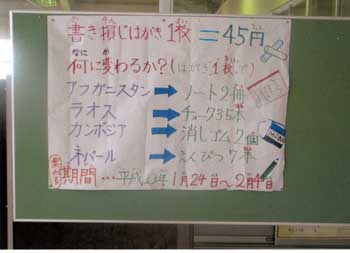 書き損じはがき1枚=45円
何に変わるか?(はがき1枚で)
アフガニスタン→ノート2冊
ラオス→チョーク35本
カンボジア→消しゴム2個
ネパール→えんぴつ7本
期間…平成23年1月24日~2月4日